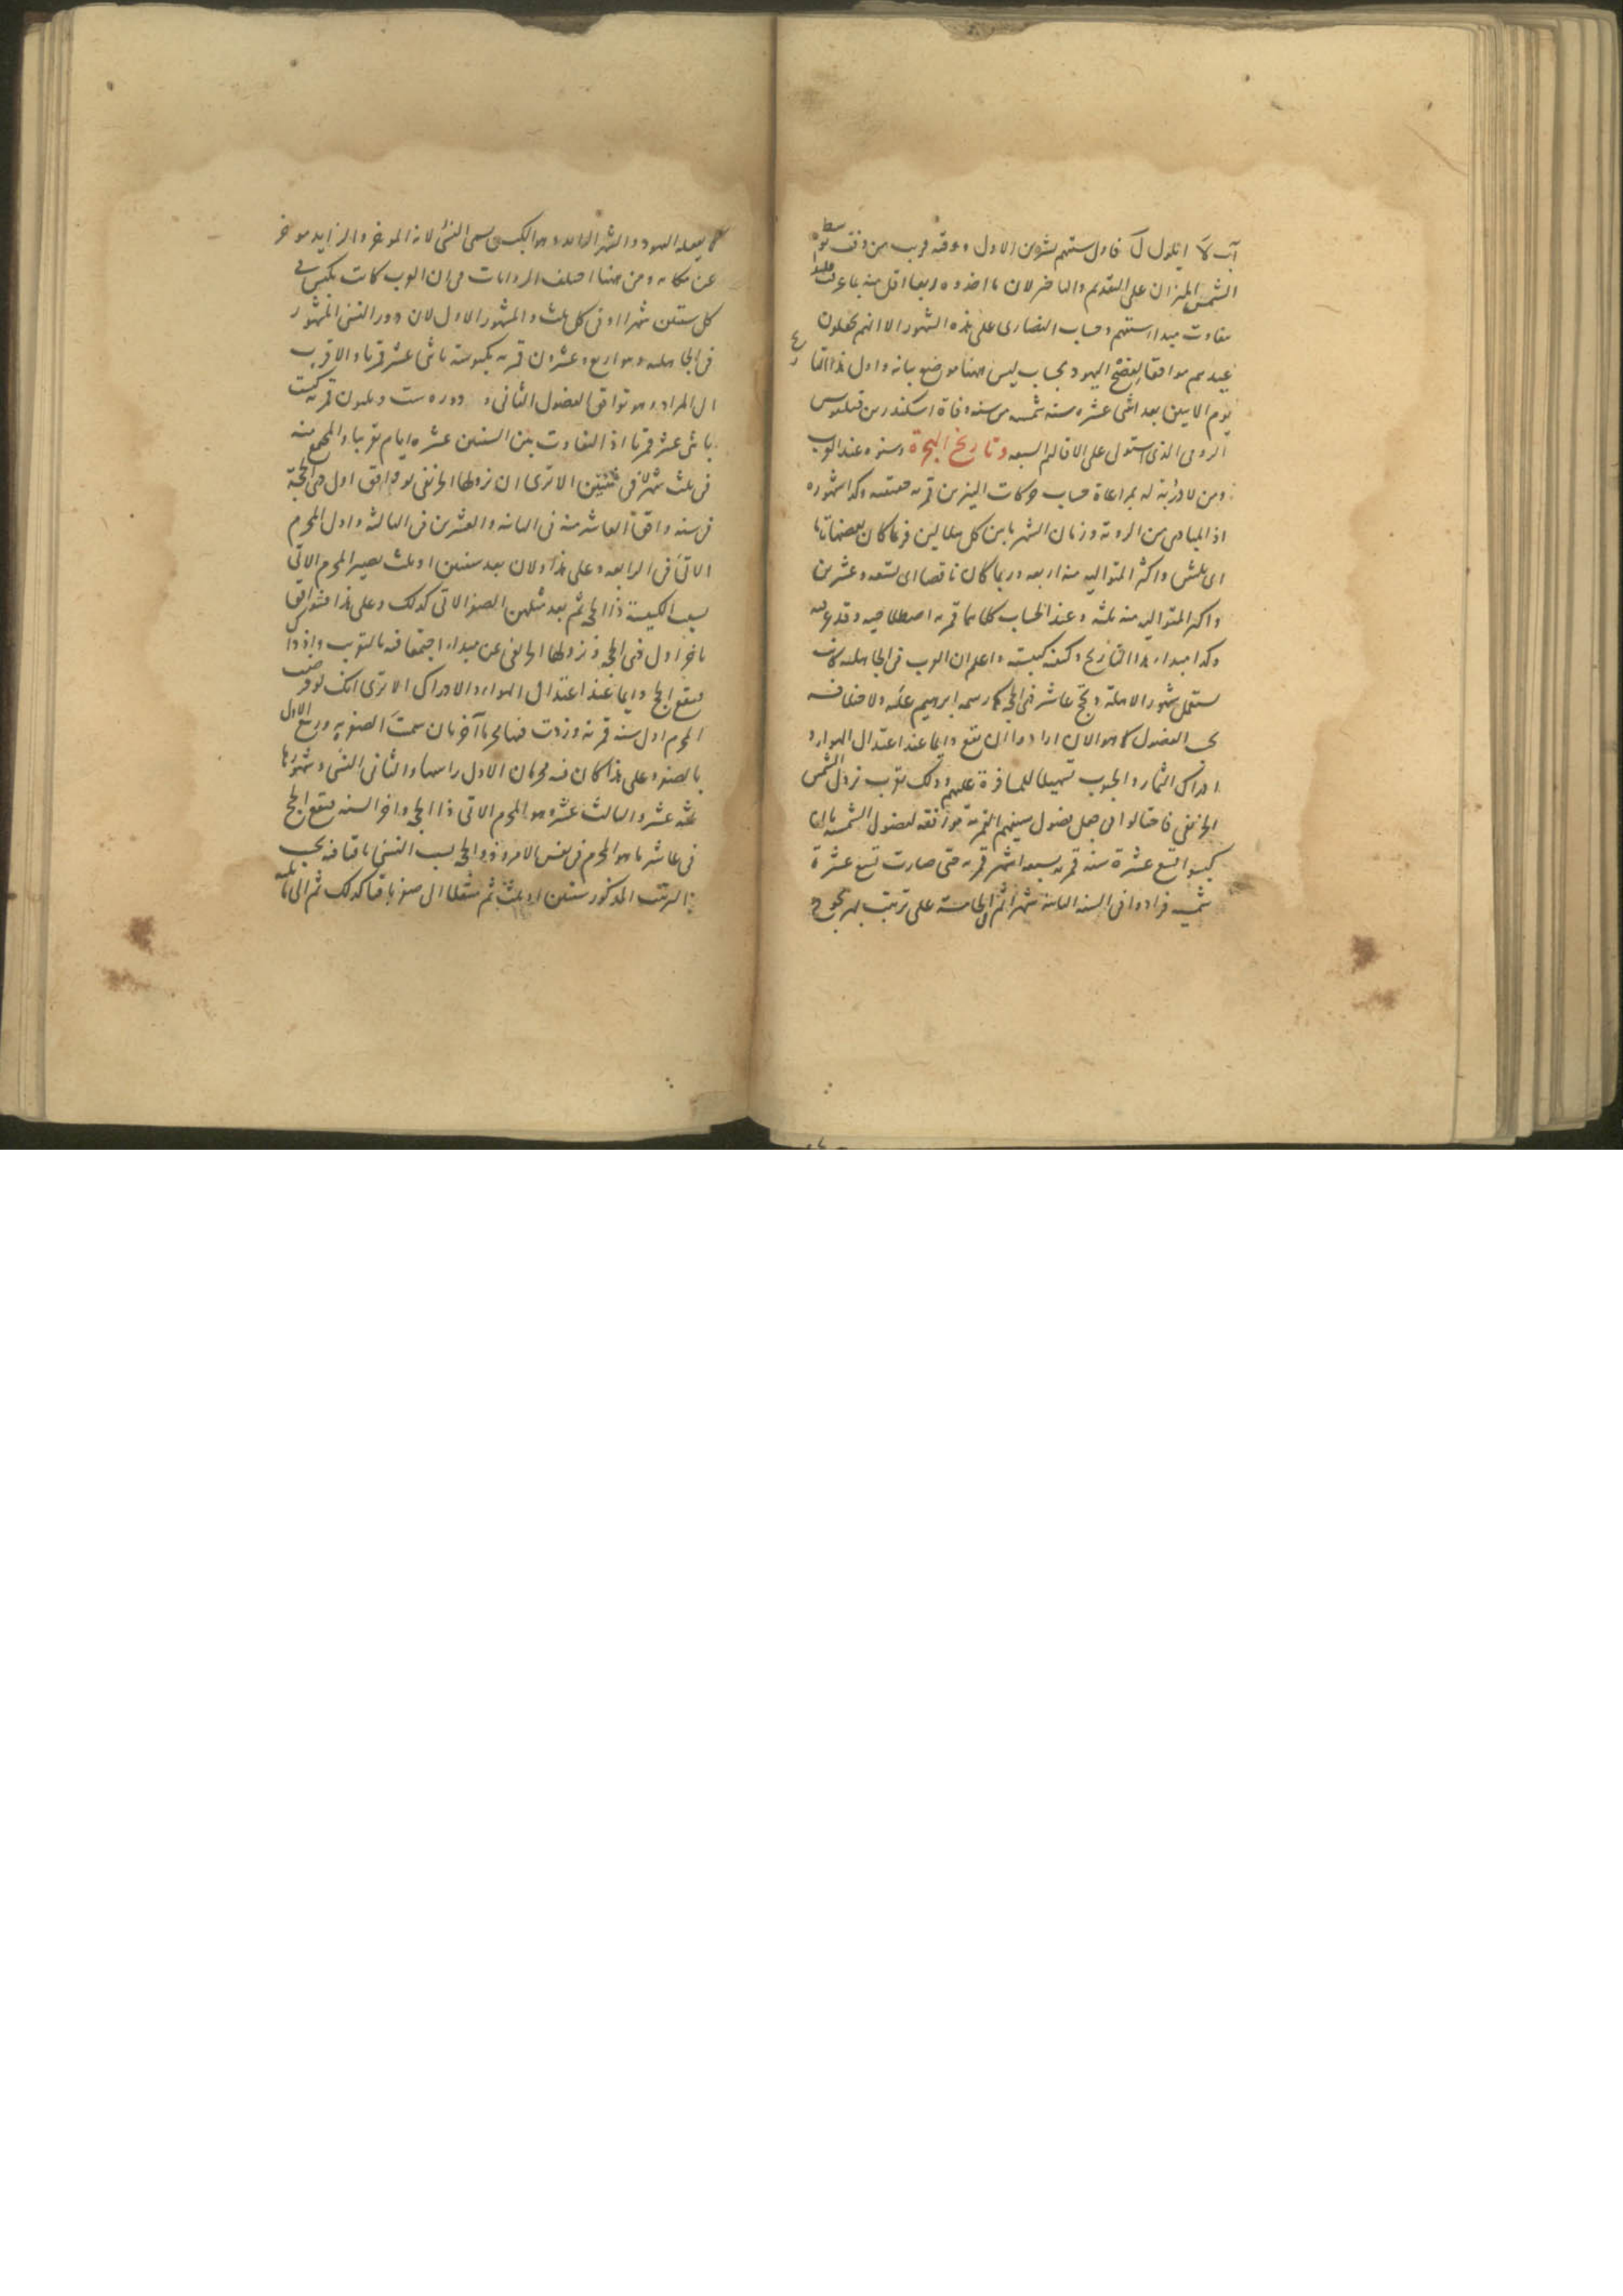 آب لا ايلول ل فاول سنتهم تشرين الاول وقه قريب من وقت توسط
الشمس الميزان على التقديم والتاخير لان ما اخذوه ربعا اقل منه بما عرفت
تفاوت مبداء سنتهم وحساب النصارى على هذه الشهور الا انهم يجعلون
عيدهم موافقا لفصح اليهود بحساب ليس ههنا موضع بيانه واول هذا التاريخ
يوم الاثنين بعد اثنى عشره سنه شمسه من سنه وفاة اسكندر بن فيلقوس
الرومى الذى استولى على الاقاليم السبعه وتاريخ الهجرة وسنوه عند العرب
ومن لا دربة له بمراعاة حساب حركات النيرين قمريه حقيقيه وكذا شهوره
اذ المبادى من الروية وزمان الشهر ما بين كل هلالين فربما كان بعضها تاما
اى ثلثين واكثر المتواليه منه اربعه وربما كان ناقصا اى تسعه وعشرين
واكثر المتوالى منه ثلثه وعند الحساب كلاهما قمريه اصطلاحيه وقد عرفته
وكذا مبداء هذا التاريخ وكيفيه كبيسته واعلم ان العرب فى الجاهليه كانت
تستعمل شهور الاهلة وتحج عاشر ذى الحجه كما رسمه ابرهيم عليه ولاختلافه
فى الفصول كما هو الان ارادوا ان يقع دايما عند اعتدال الهواء و
ادراك الثمار والحبوب تسهيلا للمسافرة عليهم وذلك بقرب نزول الشمس
الخريفى فاحتالوا فى جعل فصول سنيهم القمرية موافقه لفصول الشمسيه بان
كبسوا تسع عشرة سنه قمريه بسبعه اشهر قمريه حتى صارت تسع عشرة
شمسيه فزادوا فى السنه الثانيه شهرا ثم الخامسة على ترتيب بهزيجوح
كما يفعله اليهود والشهر الزايد وهو الكبس يسمى النسئ لانه الموخر والزايد موخر
عن مكانه ومن ههنا اختلف الروايات فى ان العرب كانت تكبس فى
كل سنتين شهرا او فى كل ثلث والمشهور الاول لان دور النسئ المشهور
فى الجاهليه وهو اربع وعشرون قمريه مكبوسة باثنى عشر قمريا والاقرب
الى المراد وهو توافق الفصول الثانى و دوره ست وثلثون قمرية كبست
باثنى عشر قمريا اذ التفاوت بين السنتين عشره ايام تقريبا والمجتمع منه
فى ثلث شهر لا فى سنتين الا ترى ان نزولها الخريفى لو وافق اول ذى الحجة
فى سنه وافق العاشر منه فى الثانيه والعشرين فى الثالثه واول المحرم
الاتى فى الرابعه وعلى هذا ولان بعد سنتين او ثلث يصير المحرم الاتى
بسبب الكبيسة ذا الحجه ثم بعد مثلهن الصفر الاتى كذلك وعلى هذا فتوافق
باخر اول ذى الحجه ونزولها الخريفى عن مبداء اجتمعا فيه بالتقريب واذ ذا
فيقع الحج دايما عند اعتدال الهواء والادراك الا ترى انك لو فرضت
المحرم اول سنه قمرية وزدت فيها محرما آخر بان سميت الصفر به وربيع الاول
بالصفر وعلى هذا كان فيه محرمان الاول راسها والثانى النسئ وشهورها
ثلثه عشر والثالث عشر هو المحرم الاتى ذا الحجه واخر السنه فيقع الحج
فى عاشر ما هو المحرم فى نفس الامر وذو الحجه بسبب النسئ باقيا فيه بحسب
الترتيب المذكور سنتين او ثلث ثم منتقلا الى صفر باقيا كذلك ثم الى ما يليه